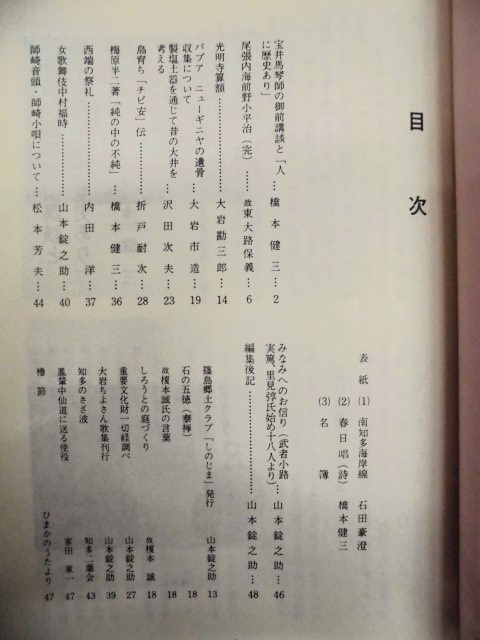 目次
宝井馬琴師の御前講談と「人に歴史あり」…橋本健三…2
尾張内海前野小平治（完）…故東大路保義…6
光明寺算額…大岩勘三郎…14
パプア ニューギニヤの遺骨収集について…大岩市造…19
製塩土器を通じて昔の大井を考える…沢田次夫…23
島育ち「チビ女」伝…折戸耐次…28
梅原半二著「純の中の不純」…橋本健三…36
西端の祭礼…内田洋…37
女歌舞伎中村福時…山本錠之助…40
師崎音頭・師崎小唄について…松本芳夫…44
表紙 (1) 南知多海岸線 石田豪澄
(2) 春日唱（詩） 橋本健三
(3) 名簿
みなみへのお信り（武者小路実篤、里見弴氏始め十八人より）…山本錠之助…46
編集後記…山本錠之助…48
篠島郷土クラブ「しのじま」発行 山本錠之助 13
石の五徳（泰禅） 18
故榎本誠氏の言葉 故榎本誠 18
しろうとの庭づくり 山本錠之助 27
重要文化財一切経調べ 山本錠之助 39
大岩ちよさん歌集刊行 知多二葉会 43
知多のさざ波 家田東一 47
鳳輦中仙道に送る使役
櫓節 ひまかのうたより 47